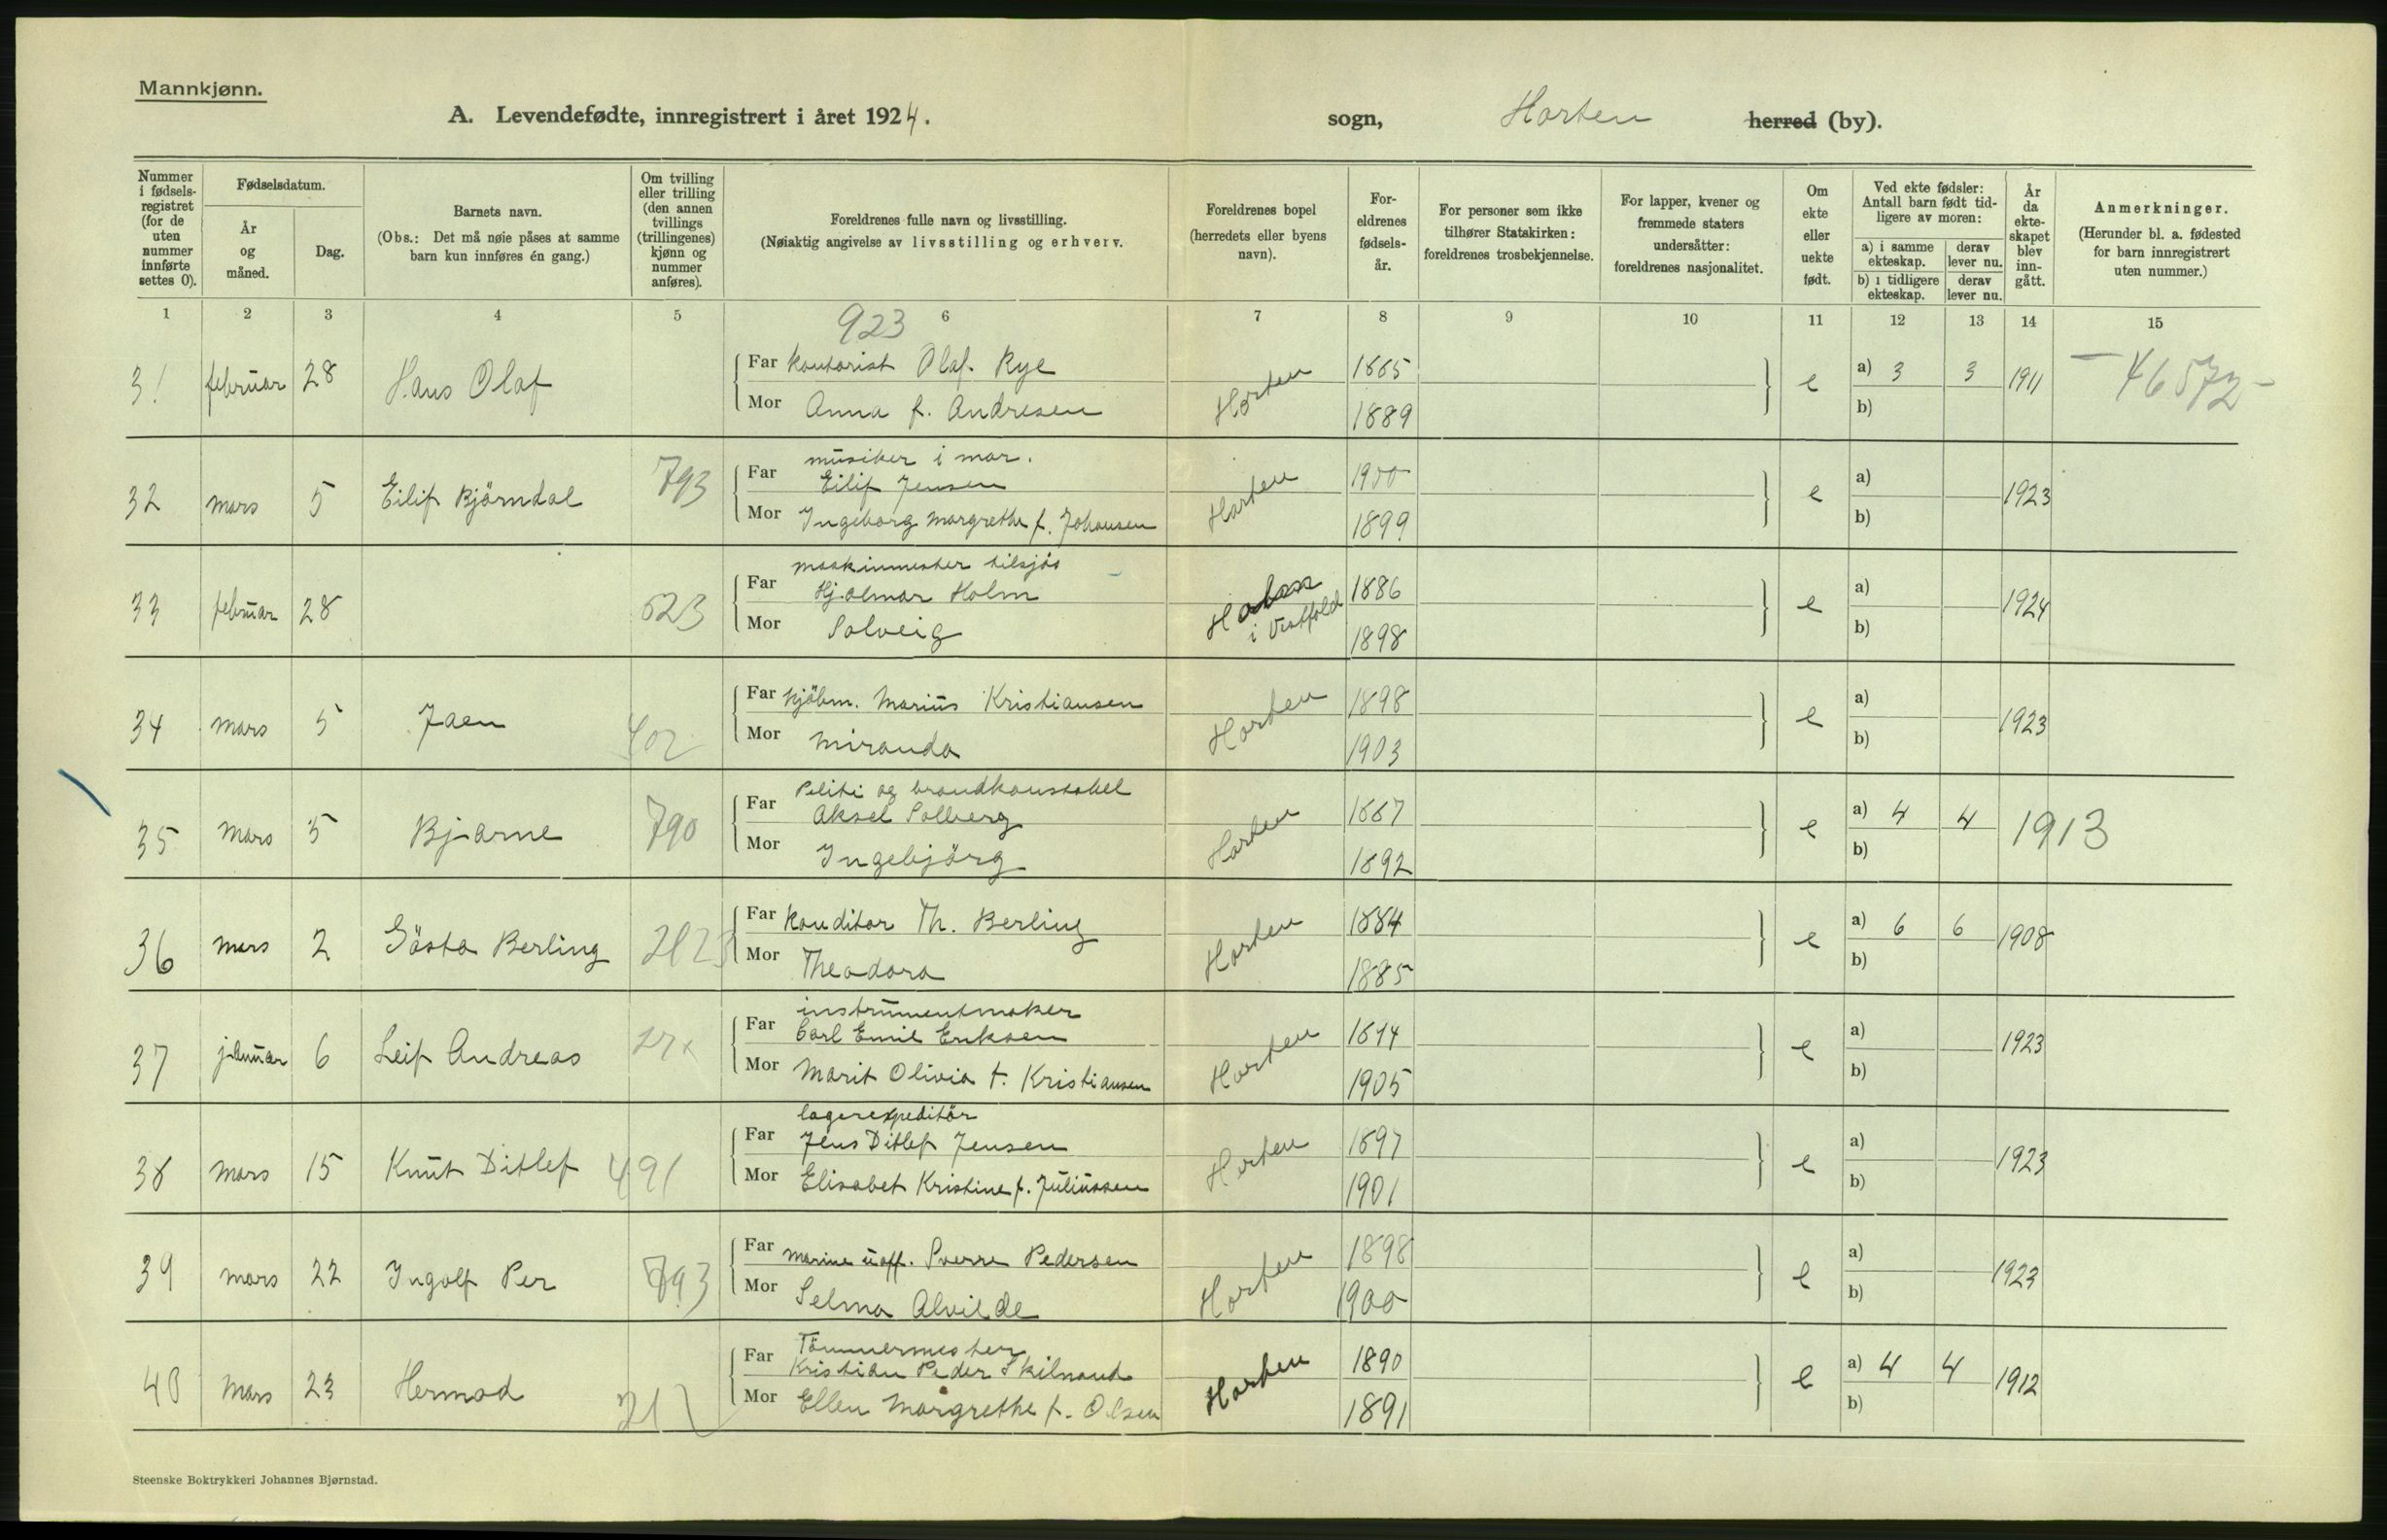 Mannkjønn.
A. Levendefødte, innregistrert i året 1924.
sogn, Horten herred (by).
Nummer i fødsels-registret (for de uten nummer innførte settes 0).
Fødselsdatum.
År og måned.
Dag.
Barnets navn.
(Obs.: Det må nøie påses at samme barn kun innføres én gang.)
Om tvilling eller trilling (den annen tvillings (trillingenes) kjønn og nummer anføres).
Foreldrenes fulle navn og livsstilling.
(Nøiaktig angivelse av livsstilling og erhverv.
Foreldrenes bopel (herredets eller byens navn).
For-eldrenes fødsels-år.
For personer som ikke tilhører Statskirken: foreldrenes trosbekjennelse.
For lapper, kvener og fremmede staters undersåtter: foreldrenes nasjonalitet.
Om ekte eller uekte født.
Ved ekte fødsler: Antall barn født tid-ligere av moren:
a) i samme ekteskap.
derav lever nu.
b) i tidligere ekteskap.
derav lever nu.
År da ekte-skapet blev inn-gått.
Anmerkninger.
(Herunder bl. a. fødested for barn innregistrert uten nummer.)
1 2 3 4 5 6 7 8 9 10 11 12 13 14 15
923
31 februar 28 Hans Olaf
Far kontorist Olaf Rye Horten 1885 e a) 3 3 1911 46572
Mor Anna f. Andresen 1889 b)
musiker i mar.
32 mars 5 Eilif Björndal 793
Far Eilif Jensen Horten 1900 e a) 1923
Mor Ingeborg Margrethe f. Johansen 1899 b)
maskinmester tilsjös
33 februar 28 523
Far Hjalmar Holm i Vestfold 1886 e a) 1924
Mor Solveig 1898 b)
34 mars 5 402
Far kjöbm. Marius Kristiansen Horten 1898 e a) 1923
Mor Miranda 1903 b)
Politi og brandkonstabel
35 mars 5 Bjarne 790
Far Aksel Solberg Horten 1887 e a) 4 4 1913
Mor Ingebjörg 1892 b)
36 mars 2 Gösta Berling
Far konditor Th. Berling Horten 1884 e a) 6 6 1908
Mor Theodora 1885 b)
instrumentmaker
37 januar 6 Leif Andreas
Far Carl Emil Eriksen Horten e a) 1923
Mor Marit Olivia f. Kristiansen 1905 b)
lagerexpeditör
38 mars 15 Knut Ditlef 491
Far Jens Ditlef Jensen Horten 1897 e a) 1923
Mor Elisabet Kristine f. Juliussen 1901 b)
39 mars 22 Ingolf Per 793
Far marine uoff. Sverre Pedersen Horten 1898 e a) 1923
Mor Selma Alvilde 1900 b)
Tömmermester
40 mars 23 Hermod
Far Kristian Peder Horten 1890 e a) 4 4 1912
Mor Ellen Margrethe f. Olsen 1891 b)
Steenske Boktrykkeri Johannes Bjørnstad.